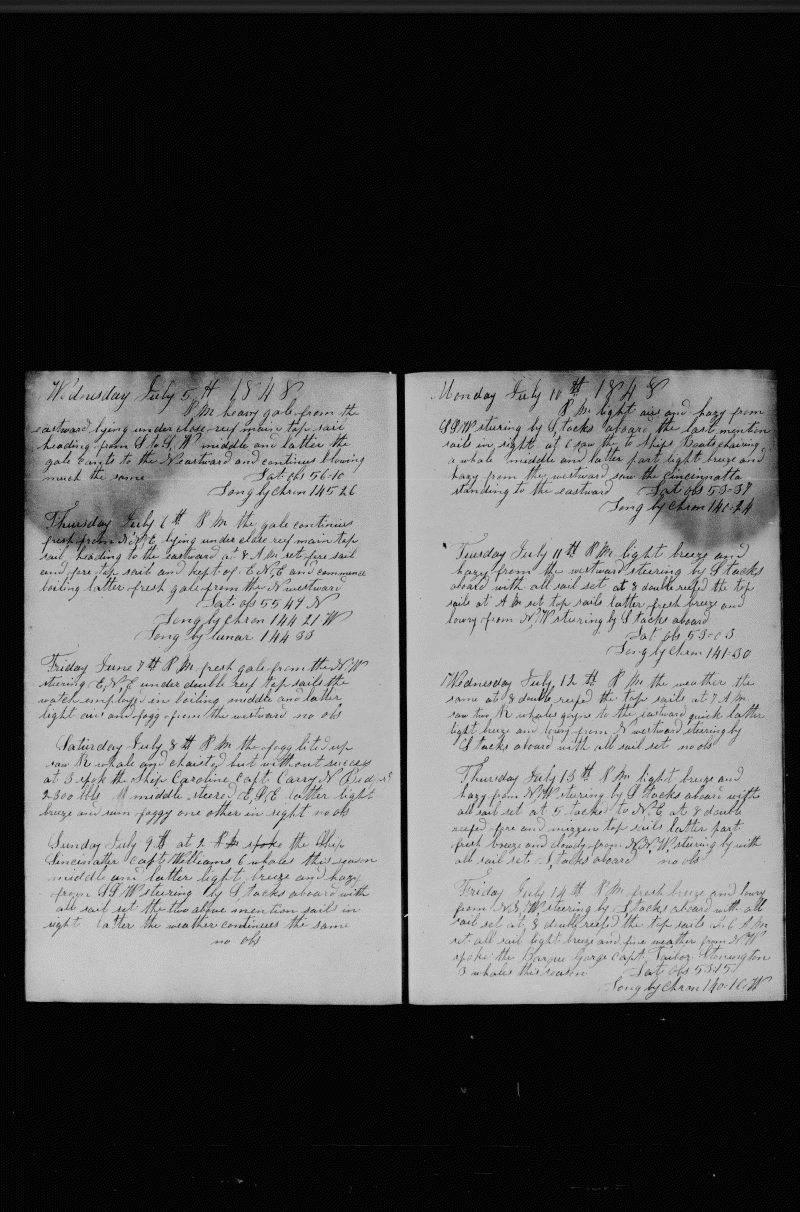 Wednesday July 5th 1848
P M heavy gale from the
eastward lying under close reef main top sail
heading from S to S W middle and latter the
gale cants to the N eastward and continues blowing
much the same Lat obs 56-10
Long by Chron 145 26
Thursday July 6th P M the gale continues
fresh from N N E lying under close reef main top
sail heading to the eastward at 8 A M set fore sail
and fore top sail and kept of E N E and commence
boiling latter fresh gale from the N westward
Lat obs 55 47 N
Long by Chron 144 21 W
Long by lunar 144 33
Friday June 7th P M fresh gale from the N W
steering E N E under double reef top sails the
watch employed in boiling middle and latter
light airs and fogg from the westward no obs
Saturday July 8th P M the fogg lited up
saw R whale and chaised but without success
at 3 spok the Ship Caroline Capt Carry N Bedford
2300 bbls middle steered E S E latter light
breeze and rum foggy one other in sight no obs
Sunday July 9th at 2 P M spoke the Ship
Sincinatter Capt Williams 6 whales this season
middle and latter light breeze and hazy
from S S W steering by S tacks aboard with
all sail set the two above mention sail in
sight latter the weather continues the same
no obs
Monday July 10th 1848
P M light airs and hazy from
S S W sturing by S tacks aboard the last mention
sails in sight at 6 saw the to Ships Boats chaising
a whale middle and latter part light breeze and
hazy from the westward saw the cincinnatta
standing to the eastward Lat obs 53-37
Long by Chron 140-24
Tuesday July 11th P M light breeze and
hazy from the westward steering by S tacks
aboard with all sail set at 8 double reefed the top
sails at A M set top sails latter fresh breeze and
lowry from N W sturing by S tacks aboard
Lat obs 53-03
Long by Chron 141-30
Wednesday July 12th P M the weather the
same at 8 double reefed the top sails at 7 A M
saw two R whales going to the eastward quick latter
light breeze and lowry from N westward steering by
S tacks aboard with all sail set no obs
Thursday July 13th P M light breeze and
hazy from N W sturing by S tacks aboard with
all sail set at 5 tacked to N E at 8 double
reefed fore and mizzen top sails latter part
fresh breeze and cloudy from N N W sturing by with
all sail set S tacks aboard no obs
Friday July 14th P M fresh breeze and lowry
from steering by S tacks aboard with all
sail set at 8 double reefed the top sails at 6 A M
set all sail light breeze and fine weather from N W
spoke the Barque Gorge Capt Tailor Stonington
3 whales this season Lat obs 53 15
Long by Chron 140-10 W